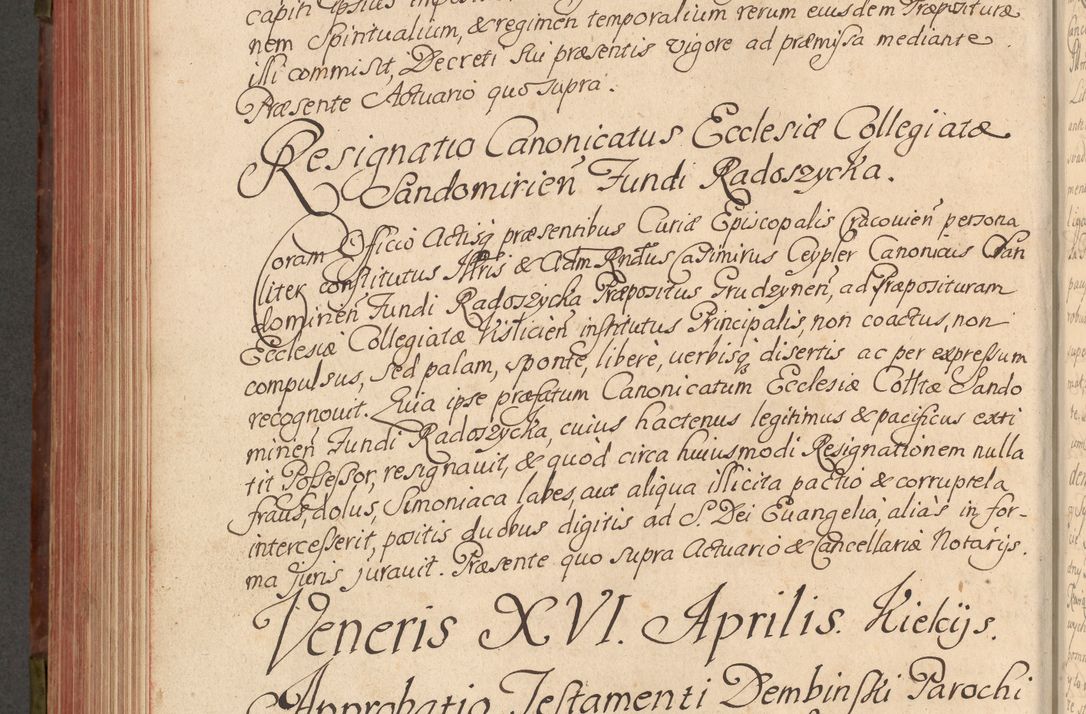 capiti ipsius
nem Spiritualium, & regimen temporalium rerum eiusdem Præposituræ
illi commisit, Decreti sui præsentis vigore ad præmissa mediante
Præsente Actuario quo supra.
Resignatio Canonicatus Ecclesiæ Collegiatæ
Sandomirień Fundi Radoszycka.
Coram Officio Actisq præsentibus Curiæ Episcopalis Cracovień persona
liter constitutus Illris & Adm Rndus Casimirus Ceypler Canonicus San
domirień Fundi Radoszycka Præpositus Grudzyneń, ad Præposituram
Ecclesiæ Collegiatæ Vislicień institutus Principalis, non coactus, non
compulsus, sed palam, sponte, libere, verbisq disertis ac per expressum
recognouit. Quia ipse præfatum Canonicatum Ecclesiæ Colttæ Sando
mirień Fundi Radoszycka, cuius hactenus legitimus & pacificus exti
tit Possessor, resignauit, & quod circa huiusmodi Resignationem nulla
fraus, dolus, Simoniaca labes, aut aliqua illicita pactio & corruptela
intercesserit, positis duobus digitis ad S. Dei Euangelia, aliàs in for-
ma juris jurauit. Præsente quo supra Actuario & Cancellariæ Notarijs.
Veneris XVI. Aprilis. Kielcijs.
Approbatio Testamenti Dembinski Parochi